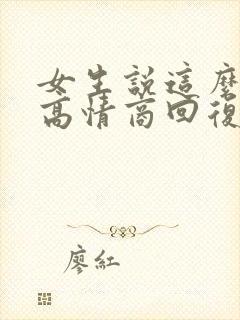 女生説這麼
高情商回復
廖紅